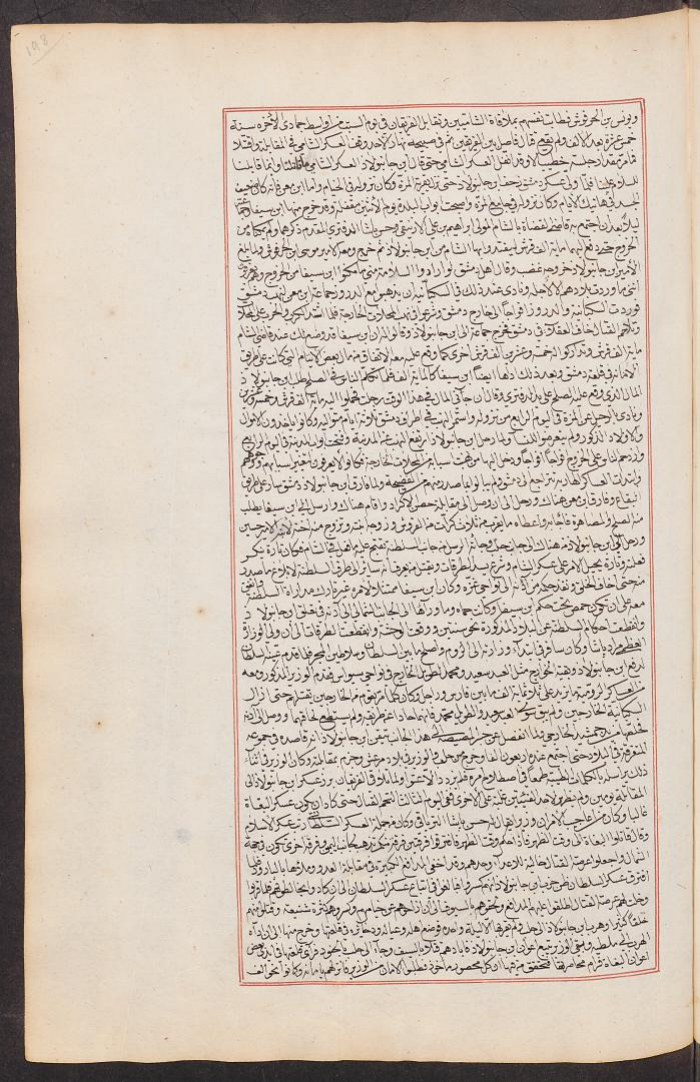 198
ويونس بن الحرفوش فطابت نفسهم بملاقاة الشاميين وتقابل الفريقان في يوم السبت من اواسط جمادى الآخره سنة
خمس عشرة بعد الالف ولم يقع قتال فاصل بين الفريقين ثم في صبيحة نهار الاحد وقف العسكر الشامي في المقابلة
قام مقدار جلسة خطيب الا وقد انفل العسكر الشامي حتى قال ابن جانبولاذ العسكر الشامي ما قاتلنا وانما قابلنا
للسلام علينا فلما ولى عسكر دمشق زحف ابن جانبولاذ حتى نزل بقرية المزة وكان نزوله في الخيام واما ابن معن فانه كان ضعيف
الجسد في هاتيك الايام وكان نزوله في جامع المزة واصبحت ابواب البلدة يوم الاثنين مقفلة وقد خرج منها ابن سيفا وجماعته
ليلا بعد ان اجتمع به قاضي القضاة بالشام المولى ابراهيم بن علي الازنيقي وحسن باشا الدفتري المقدم ذكرهما ولم يمكناه من
الخروج حتى دفع اليهما ماية الف قرش ليفتدوا بها الشام من ابن جانبولاذ ثم خرج ومعه الامير موسى ابن الحرفوش ولما بلغ
الامير ابن جانبولاذ خروجه غضب وقال اهل دمشق لو ارادوا السلامة مني ما مكنوا ابن سيفا من الخروج وهم يعرفون
اني ما وردت بلادهم الا لاجله ونادى عند ذلك في السكبانية ان يذهبوا مع الدروز جماعة ابن معن لنهب دمشق
فوردت السكبانية والدروز افواجا الى خارج دمشق وشرعوا في نهب المحلات الخارجة فلما اشتد الكرب والحرب على المحلات
وتلاحم القتال خاف العقلاء في دمشق فخرج جماعة الى ابن جانبولاذ وقالوا له ان ابن سيفا قد وضع لك عند قاضي الشام
ماية الف قرش وتداركوا له خمسة وعشرين الف قرش اخرى كما وقع عليه معه الاتفاق من مال بعض الايتام التي كانت على طريق
الامانة في قلعة دمشق وبعد ذلك دفعها ايضا ابن سيفا كالماية الف فلما تكلم الناس في الصلح طلب ابن جانبولاذ
المال الذي وقع عليه الصلح على يد الدفتري وقال ان جاءني المال في هذا الوقت رحلت فحملوا اليه ماية الف قرش وخمسة وعشرين
ونادى بالرحيل عن المزة في اليوم الرابع من نزوله واستمر النهب في اطراف دمشق ثلاثة ايام متوالية وكانوا ياخذون الاموال
والاولاد الذكور ولم يتعرضوا للنساء ولما رحل ابن جانبولاذ ارتفع النهب عن المدينة وفتحت ابواب المدينة في اليوم الرابع
وازدحم الناس على الخروج افواجا افواجا ودخل اليها من نهبت اسبابه من المحلات الخارجة فكانوا لا يعرفون لتغير لباسهم ووجوههم
وابتدأت العساكر الهاربة تتراجع الى دمشق ولم يبالوا بما صدر منهم من الفضيحة ولما فارق ابن جانبولاذ دمشق سار على طريق
البقاع وفارق ابن معن هناك ورحل الى ان وصل الى مقابلة حصن الاكراد واقام هناك وارسل الى ابن سيفا يطلب
منه الصلح والمصاهرة فاجابه واعطاه ما يقرب من ثلاث كرات من القروش وزوجه ابنته وتزوج منه اخته لابنه الامير حسين
ورحل ابن جانبولاذ من هناك الى حلب وجاته الرسل من جانب السلطنة تقبح عليه ما فعل في الشام فكان تارة ينكر
فعلته وتارة يحيل الامر على عسكر الشام وشرع يسد الطرقات ويقتل من يعرف انه سائر الى طرف السلطنة لابلاغ ما صدر
منه حتى اخاف الخلق ونفذ حكمه من آذنة الى نواحي غزة وكان ابن سيفا ممتثلا لامره غير تارك مداراة السلطنة واتفق
معه على ان تكون حمص تحت حكم ابن سيفا وكان حماه وما ورآها الى الجانب الشمالي الى آذنة في تعلق ابن جانبولاذ
وانقطعت احكام السلطنة عن البلاد المذكورة نحو سنتين ووقعت الوحشة وانقطعت الطرقات الى ان ولي الوزارة
العظمى مراد باشا وكان سافر في ابتداء وزارته الى الروم واصلح ما بين السلطان وسلاطين المجر فلما قدم عينه السلطان
لدفع ابن جانبولاذ وبقية الخوارج مثل العبد سعيد ومحمد الطويل الخارج في نواحي سيواس فقدم الوزير المذكور ومعه
من العساكر الرومية ما يزيد على ثلاثماية الف ما بين فارس وراجل وكان كلما مر بقوم من الخارجين يقتلهم حتى ازال
السكبانية الخارجين ولم يبق سوى العبد سعيد والطويل محمد فانهما حادا عن طريقه ولم يسعه لحاقهما ووصل الى آذنة
فخلصها من يد جمشيد الخارجي ولما انفصل عن جسر المصيصة الى هذا الجانب تيقن ابن جانبولاذ انه قاصده فجمع جموعه
المتفرقة في البلاد حتى اجتمع عنده اربعون الفا وخرج من حلب والوزير في بلاد مرعش وجزم بمقابلته وكان الوزير في اثناء
ذلك يراسله بالكلمات الطيبة طمعا في اصطلاحه فلم يزدد الا عتوا ولما تلاقى الفريقان برز عسكر ابن جانبولاذ الى
المقاتلة يومين ولم يظهر لاحد الفئتين غلبة على الاخرى ففي اليوم الثالث التحم القتال حتى كاد ان يكون عسكر البغاة
غالبا وكان من اعاجيب الامر ان وزيرا يقال له حسن باشا الترياقي وكان من جملة العسكر السلطاني رتب عسكر الاسلام
وقال قاتلوا البغاة الى وقت الظهر فاذا دخل وقت الظهر فافترقوا فرقتين فرقة تذهب لجانب اليمين وفرقة اخرى تكون في جهة
الشمال واجعلوا عرصة القتال خالية للاعداء وحدهم وقد اخفى المدافع الكبيرة في مقابلة العدو وملأوها بالبارود فلما
افترق عسكر السلطان ظن حزب ابن جانبولاذ انهم كسروا فبالغوا في اتباع عسكر السلطان الى ان كادوا يخالطونهم فلما قربوا
وخلت لهم عرصة القتال اطلقوا عليهم المدافع ولحقوهم بالسيوف الى ان ازالوهم عن خيامهم وكسروهم كسرة شنيعة وقتلوا منهم
خلقا كثيرا وهرب ابن جانبولاذ الى حلب ولم يقر بها الا ليلة واحدة فوضع اهله وعياله وذخائره في قلعتها وخرج منها الى ان جاء
الهرب الى ملطية وسعى الوزير في تتبع اعوان ابن جانبولاذ فابادهم قتلا بالسيف وجاء الى حلب بالجنود فرأى قلعتها في ايدي بعض
اعوان البغاة فرام محاصرتها فتحقق من فيها ان كل محصور مأخوذ فطلبوا الامان من الوزير فانزلهم بامانه وكانوا نحو الف